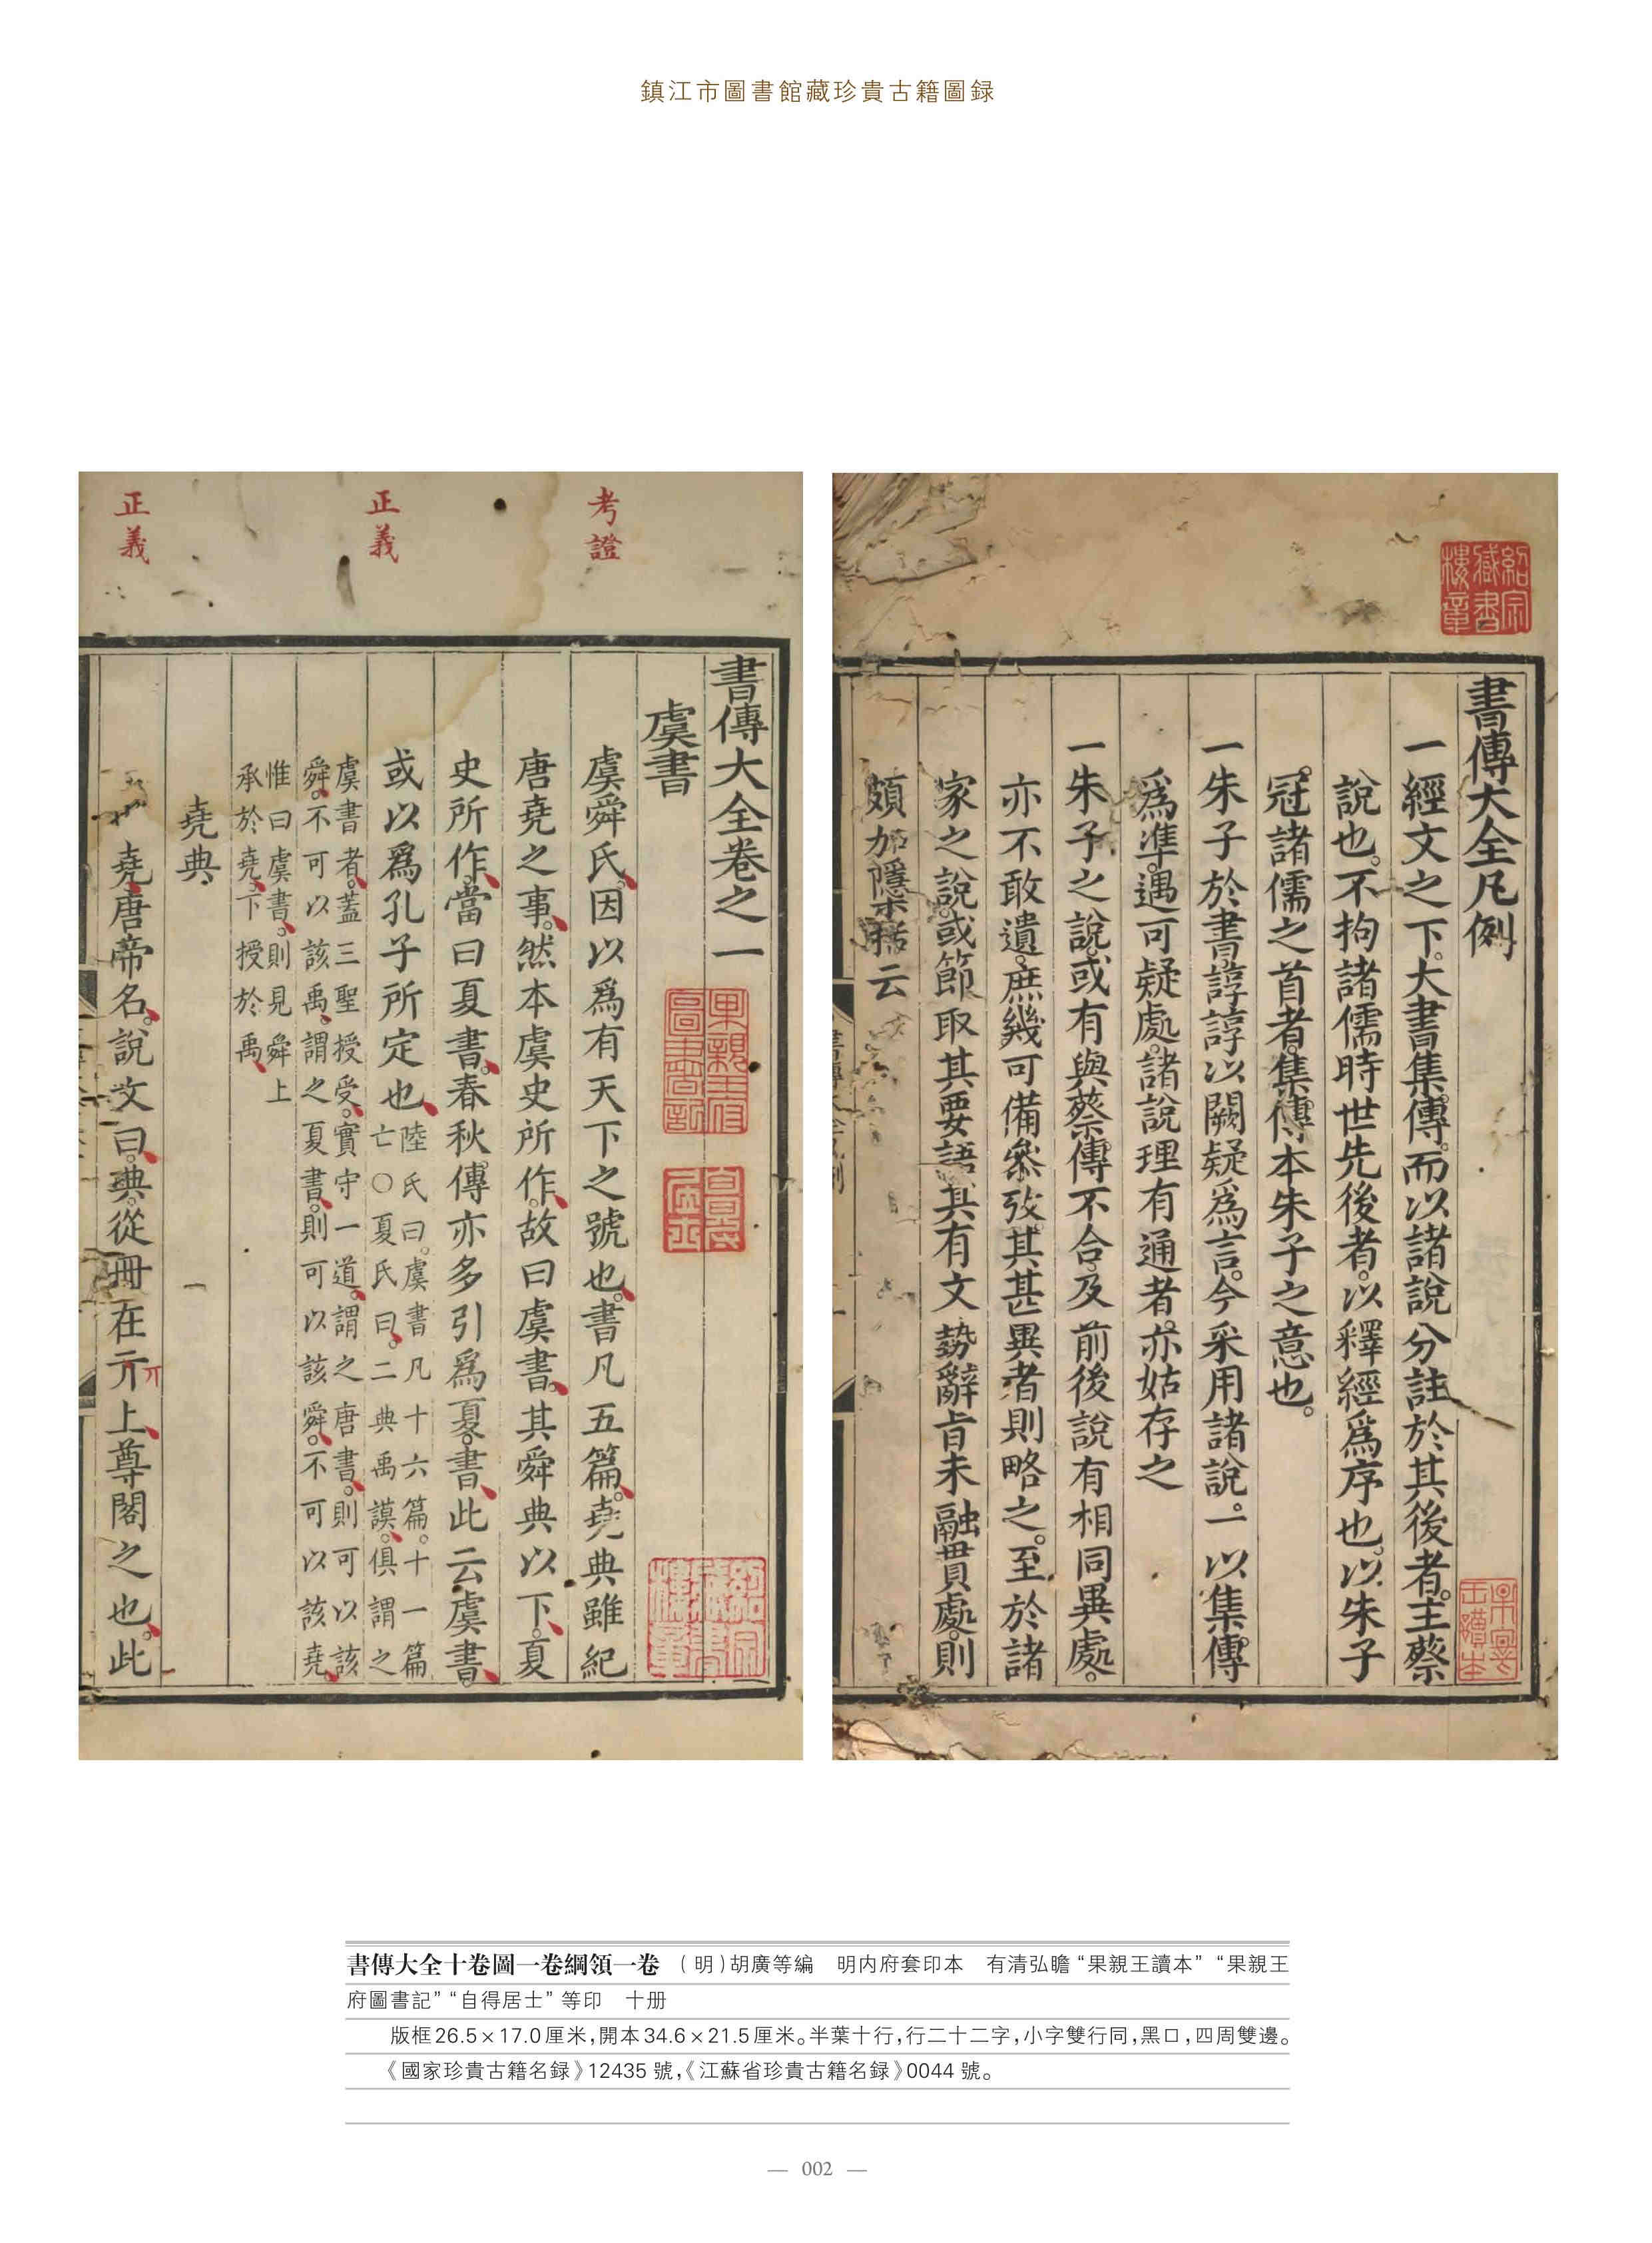 鎮江市圖書館藏珍貴古籍圖録
紹宗
藏書
樓章
書傳大全凡例
一經文之下。大書集傳。而以諸說分註於其後者。主蔡
說也。不拘諸儒時世先後者。以釋經爲序也。以朱子
冠諸儒之首者。集傳本朱子之意也。
一朱子於書諄諄以闕疑爲言。今采用諸說。一以集傳
爲準。遇可疑處。諸說理有通者。亦姑存之
一朱子之說。或有與蔡傳不合。及前後說有相同異處。
亦不敢遺。庶幾可備參攷。其甚異者則略之。至於諸
家之說。或節取其要語。其有文勢辭旨未融貫處。則
頗加隱括云
考證
正義
正義
書傳大全卷之一
虞書
果親王府
圖書記
自得
居士
紹宗
藏書
樓章
虞舜氏。因以爲有天下之號也。書凡五篇。堯典雖紀
唐堯之事。然本虞史所作。故曰虞書。其舜典以下。夏
史所作。當曰夏書。春秋傳亦多引爲夏書。此云虞書。
或以爲孔子所定也。
陸氏曰。虞書凡十六篇。十一篇
亡○夏氏曰。二典禹謨。俱謂之
虞書者。蓋三聖授受。實守一道。謂之唐書。則可以該
舜。不可以該禹。謂之夏書。則可以該舜。不可以該堯。
惟曰虞書。則見舜上
承於堯。下授於禹。
堯典
堯唐帝名。說文曰。典。從冊在丌上。尊閣之也。此
丌
書傳大全十卷圖一卷綱領一卷 （明）胡廣等編 明内府套印本 有清弘瞻“果親王讀本”“果親王
府圖書記”“自得居士”等印 十册
版框26.5×17.0厘米，開本34.6×21.5厘米。半葉十行，行二十二字，小字雙行同，黑口，四周雙邊。
《國家珍貴古籍名録》12435 號，《江蘇省珍貴古籍名録》0044 號。
— 002 —